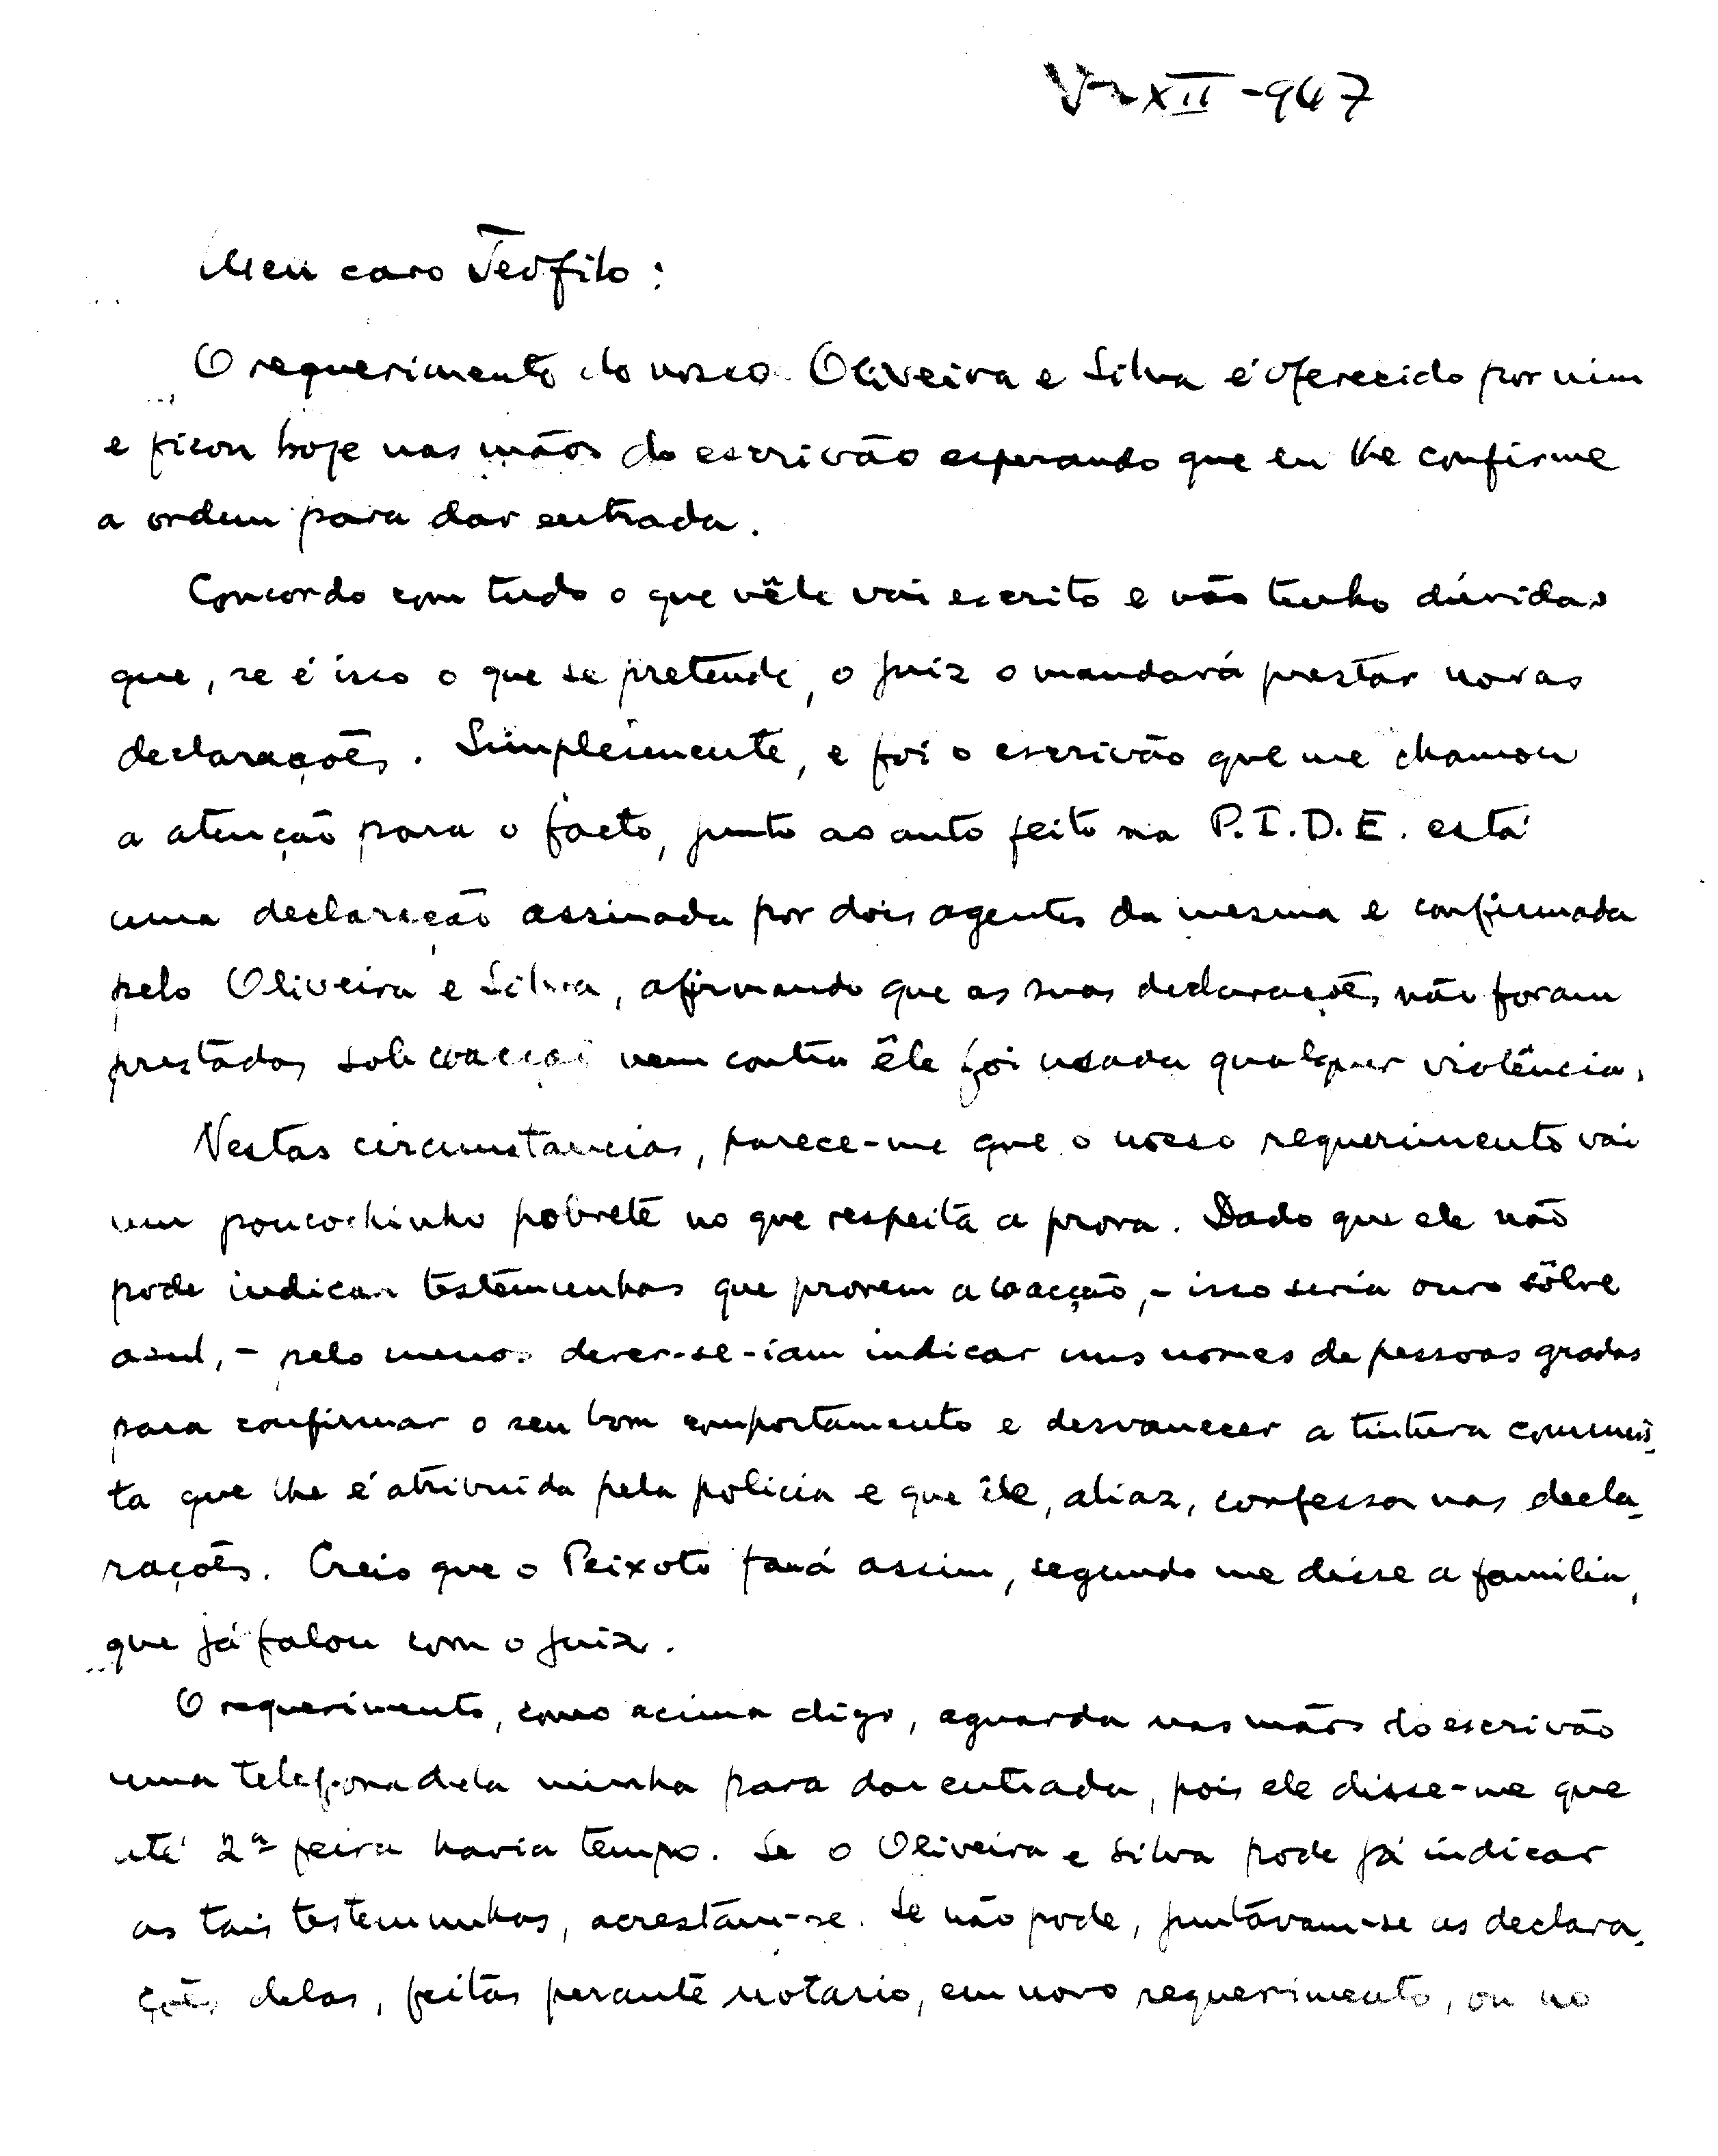 XII-947
Meu caro Teofilo:
O requerimento do nosso Oliveira e Silva é oferecido por mim
e ficou hoje nas mãos do escrivão esperando que eu lhe confirme
a ordem para dar entrada.
Concordo com tudo o que nêle vai escrito e não tenho dúvidas
que, se é isso o que se pretende, o juiz o mandará prestar novas
declarações. Simplesmente, e foi o escrivão que me chamou
a atenção para o facto, junto ao auto feito na P.I.D.E. está
uma declaração assinada por dois agentes da mesma e confirmada
pelo Oliveira e Silva, afirmando que as suas declarações não foram
prestadas sob coacção nem contra êle foi usada qualquer violência.
Nestas circunstancias, parece-me que o nosso requerimento vai
um poucochinho pobrete no que respeita a prova. Dado que ele não
pode indicar testemunhas que provem a coacção, - isso seria ouro sôbre
azul, - pelo menos dever-se-iam indicar uns nomes de pessoas gradas
para confirmar o seu bom comportamento e desvanecer a tintura comunis-
ta que lhe é atribuída pela policia e que êle, aliaz, confessa nas decla-
rações. Creio que o Peixoto fará assim, segundo me disse a familia,
que já falou com o juiz.
O requerimento, como acima digo, aguarda nas mãos do escrivão
uma telefonadela minha para dar entrada, pois ele disse-me que
até 2ª feira havia tempo. Se o Oliveira e Silva pode já indicar
as tais testemunhas, acrestam-se. Se não pode, juntávam-se as declara-
ções delas, feitas perante notario, em novo requerimento, ou no